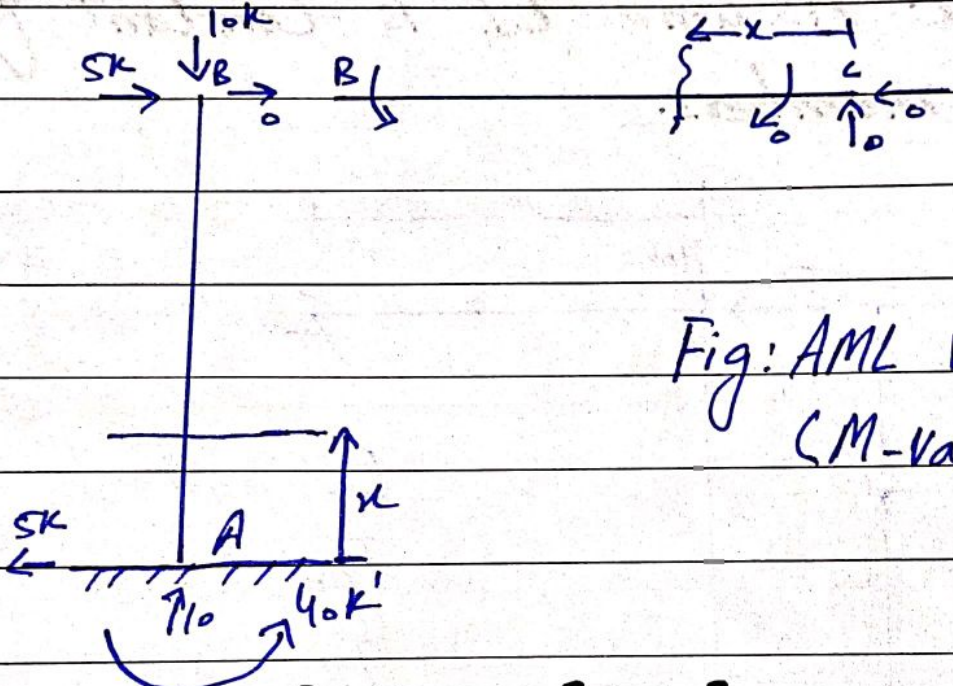 10k
5k B B x c
0 0 0 0
Fig: AML
(M-Va
x
5k A
10 40k'